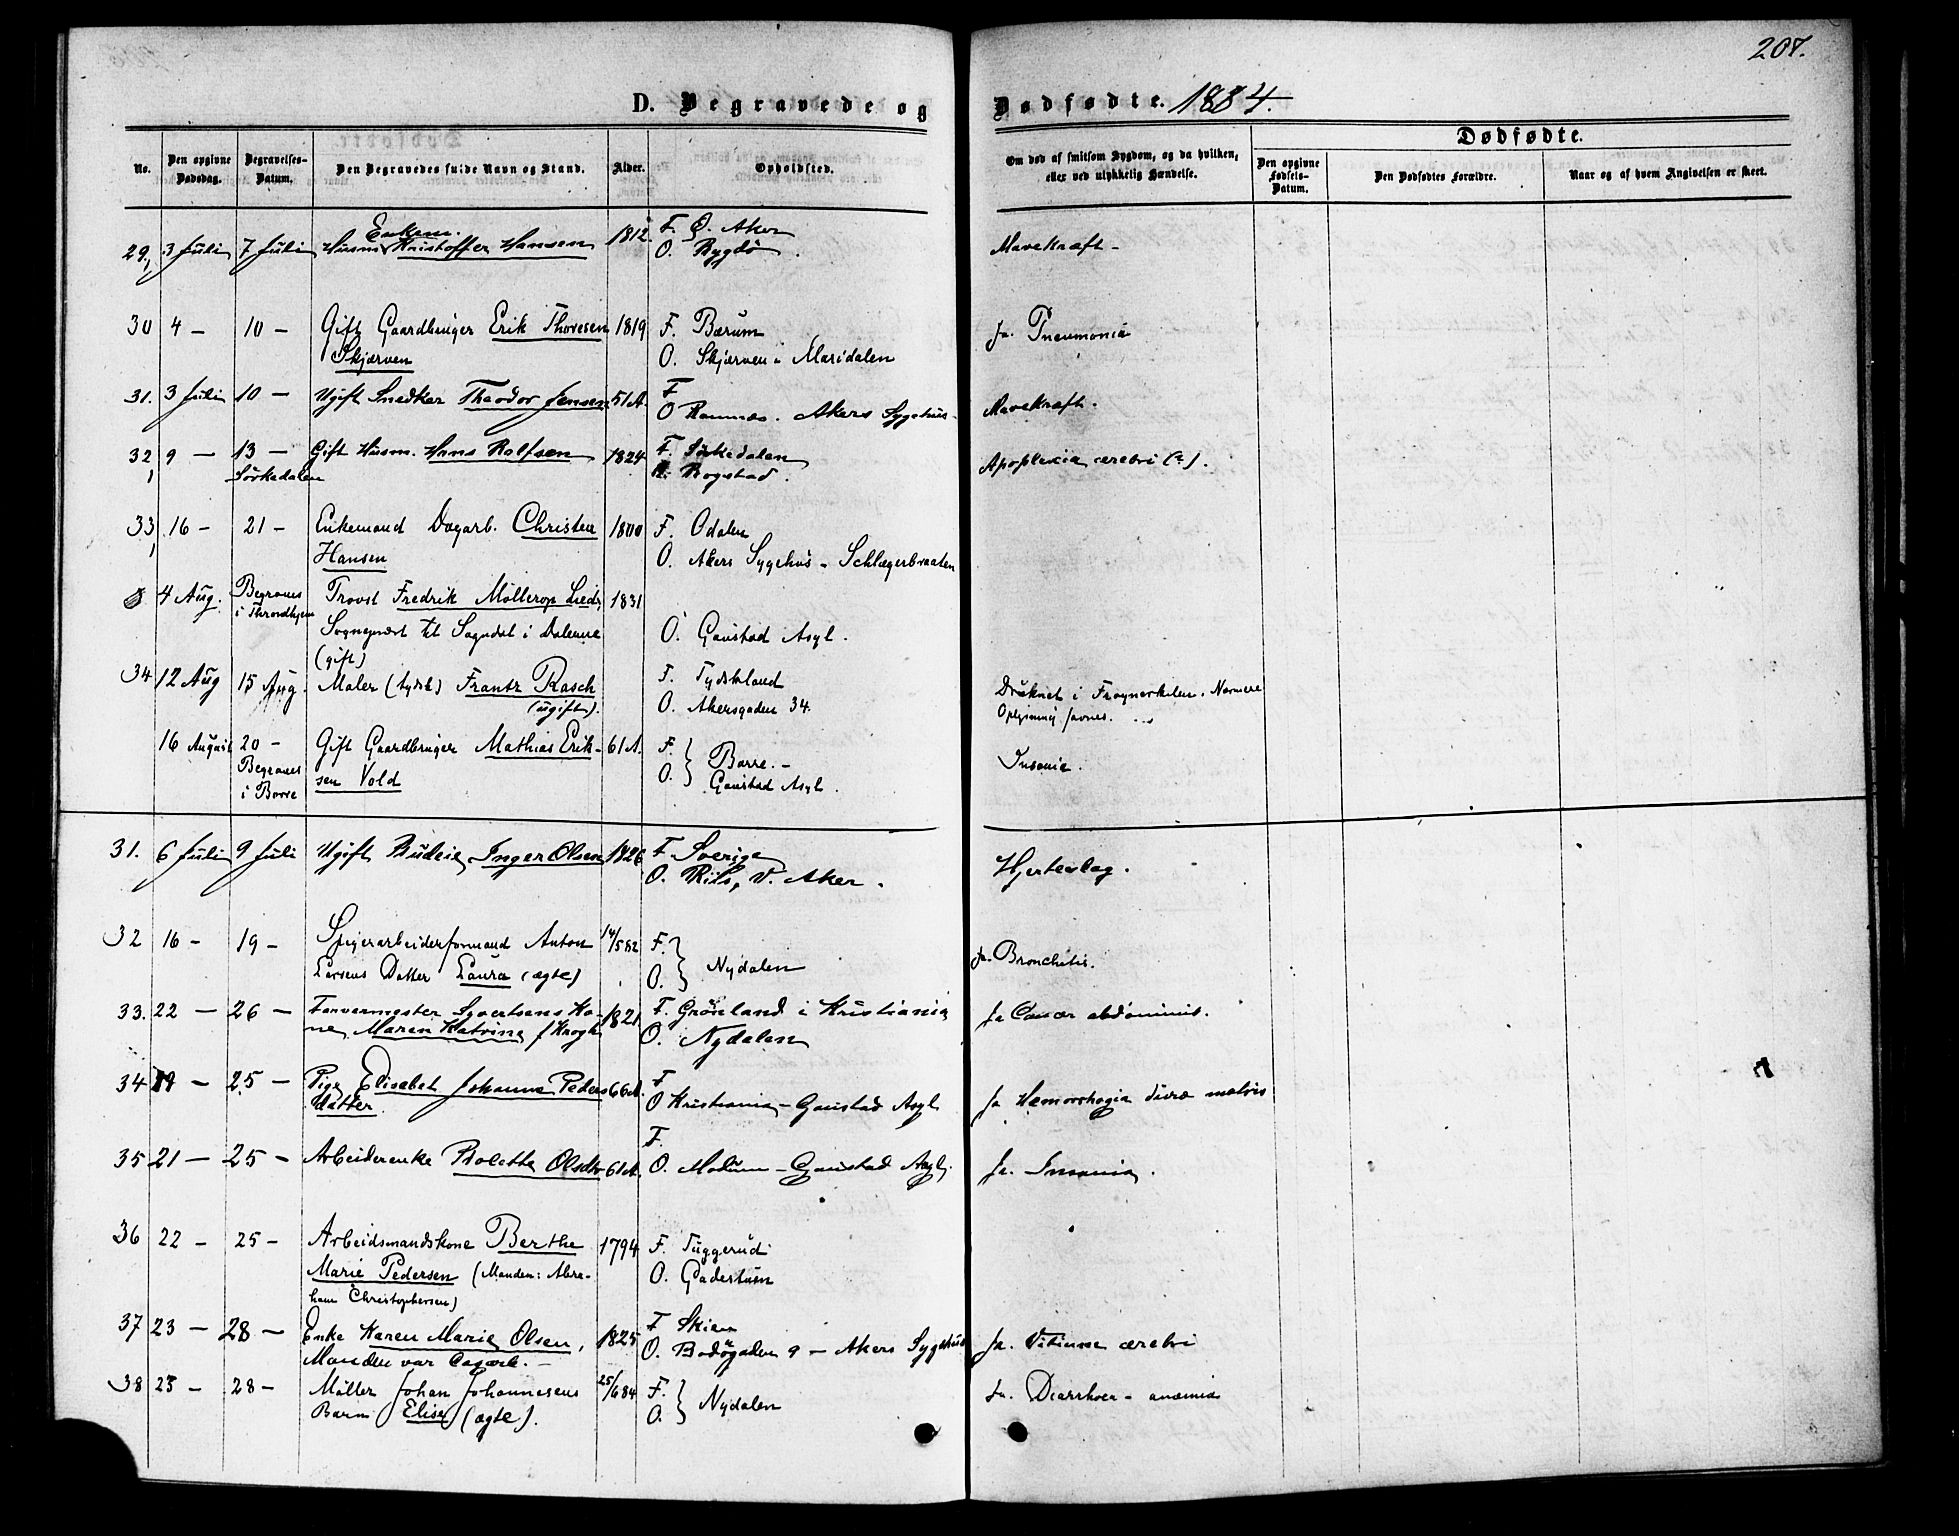 207.
D. Begravede og Dødfødte. 1884.
Dødfødte.
No.
Den opgivne Dødsdag.
Begravelses-Datum.
Den Begravedes fulde Navn og Stand.
Alder.
Opholdssted.
Om død af smitsom Sygdom, og da hvilken, eller ved ulykkelig Hændelse.
Den opgivne Fødsels-Datum.
Den Dødfødtes Forældre.
Naar og af hvem Angivelsen er skeet.
Enkem.
29, 3 Juli 7 Juli Husm. Kristoffer Hansen 1812 F. Ø. Aker Mavekræft -
O. Bygdø.
30 4 - 10 - Gift Gaardbruger Erik Thoresen 1819 F. Bærum Ja. Pneumonia
Skjærven O. Skjærven i Maridalen
31. 3 Juli 10 - Ugift Snedker Theodor Jensen 51 A. F. Mavekræft.
O Akers Sygehus -
32, 9 - 13 - Gift Husm. Hans Rolfsen 1824 F. Sørkedalen Apoplexia cerebri (?).
Sørkedalen O. Bogstad.
33, 16 - 21 - Enkemand Dagarb. Christen 1800 F. Odalen
Hansen O. Akers Sygehus - Schlægerbraaten
4 Aug. Begraves Provst Fredrik Møllerop Lieds, 1831
i Throndhjem Sognepræst til Sogndal i Dalerne O. Gaustad Asyl.
(gift)
34 12 Aug 15 Aug. Maler (tydsk) Frantz Rasch F. Tydskland Druknet i Frognerkilen. Nærmere
(ugift). O. Akersgaden 34. Oplysning savnes.
16 August 20 - Gift Gaardbruger Mathias Erik- 61 A. F. Borre. - Insania.
Begraves sen Vold O. Gaustad Asyl.
i Borre
31. 6 Juli 9 Juli Ugift Budeie Inger Olsen 1826 F. Sverige Hjerteslag.
O. Riis, V. Aker.
32 16 - 19 - Spigerarbeiderformand Anton 14/5 82 F. Ja. Bronchitis.
Larsens Datter Laura (ægte) O. Nydalen
33. 22 - 26 - Farvermester Syvertsens Ko- 1821 F. Grønland i Kristiania Ja Cancer abdominis.
ne Maren Katrine f. Krogh O. Nydalen
34 19 - 25 - Pige Elisabet Johanne Peders- 66 A. F. Ja Hæmorrhagia duræ matris
datter O Kristiania - Gaustad Asyl
35 21 - 25 - Arbeiderenke Bolette Olsdtr 61 A. F. Ja. Insania.
O. Modum - Gaustad Asyl.
36 22 - 25 - Arbeidsmandskone Berthe 1794 F. Tuggerud
Marie Pedersen (Manden: Abra- O. Gaderstuen
ham Christophersen)
37 23 - 28 - Enke Karen Marie Olsen, 1825 F. Skien Ja. Vitium cerebri
Manden var Dagarb. - O. Bodøgaden 9 - Akers Sygehus
38 25 - 28 - Møller Johan Johannesens 25/6 84 F. Ja. Diarrhoea - anæmia
Barn Elise (ægte). O. Nydalen